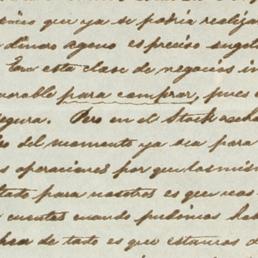 que ya se podria realiza
dinero ageno es preciso sugeta
En esta clase de negocios in
orable para comprar, pues a
segura. Pero en el Stock
del momento ya sea para
operaciones por que las mis
tado para nosotros es que nos
cuentas cuando pudimos ha
de todo es que estamos a